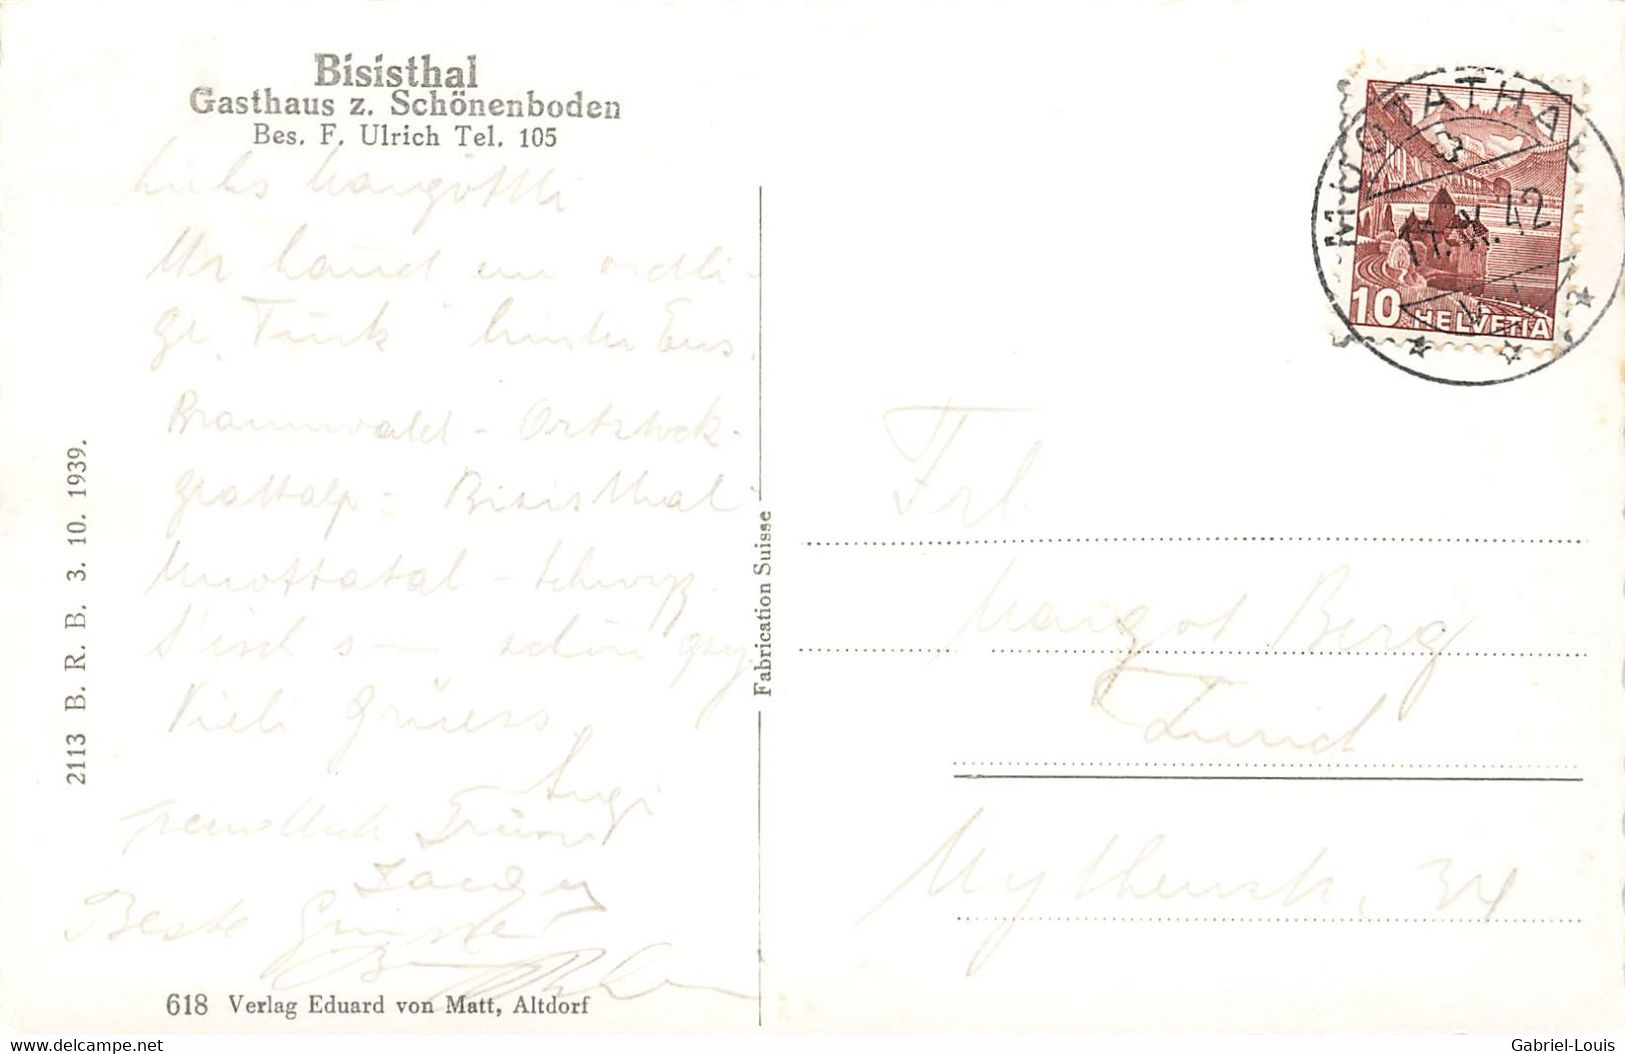 Bisisthal
Gasthaus z. Schönenboden
Bes. F. Ulrich Tel. 105
Liebs Margöttli
Mir händ en ordli-
ge Türk hinter Eus.
Braunwald - Ortstock-
glattalp - Bisisthal
Muottatal - Schwyz.
S'isch s— schön gsy.
Vieli Grüess
Beste Grüsse
618 Verlag Eduard von Matt, Altdorf
2113 B. R. B. 3. 10. 1939.
Fabrication Suisse
MUOTATHAL
42
10 HELVETIA
Frl.
Margot Berg
Zürich
Mythenstr. 34
delcampe.net
Gabriel-Louis